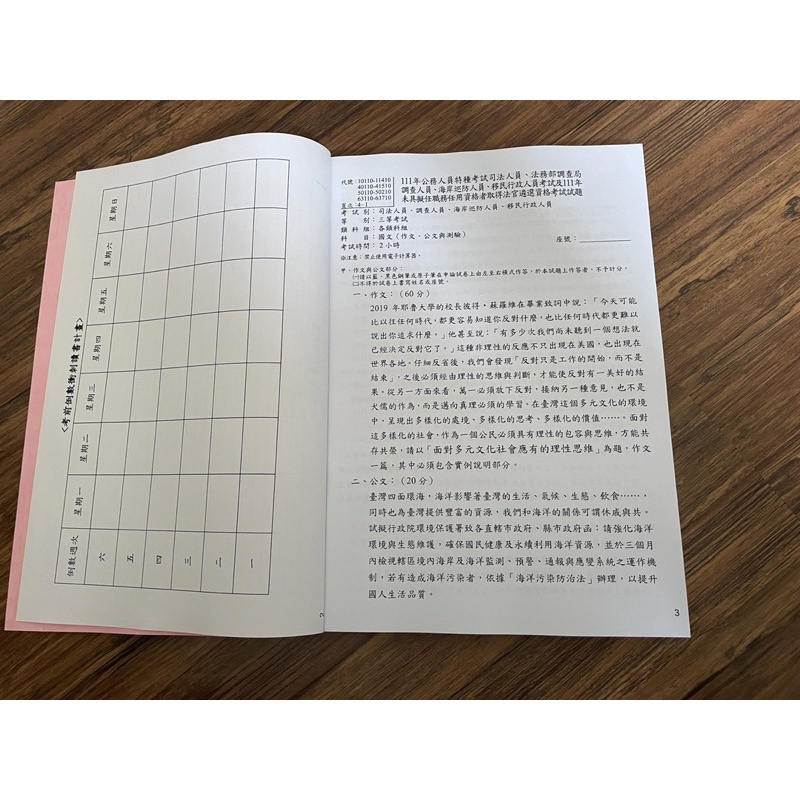 <考前倒數衝刺讀書計畫>
倒數週次 星期一 星期二 星期三 星期四 星期五 星期六 星期日
六
五
四
三
二
一
2
代號：10110-11410
40110-41510
50110-50210
63110-63710
頁次：4-1
111年公務人員特種考試司法人員、法務部調查局
調查人員、海岸巡防人員、移民行政人員考試及111年
未具擬任職務任用資格者取得法官遴選資格考試試題
考試別：司法人員、調查人員、海岸巡防人員、移民行政人員
等別：三等考試
類科組：各類科組
科目：國文（作文、公文與測驗）
考試時間：2小時
座號：
※注意：禁止使用電子計算器。
甲、作文與公文部分：
㈠請以藍、黑色鋼筆或原子筆在申論試卷上由左至右橫式作答，於本試題上作答者，不予計分。
㈡不得於試卷上書寫姓名或座號。
一、作文：（60 分）
2019 年耶魯大學的校長彼得・蘇羅維在畢業致詞中說：「今天可能
比以往任何時代，都更容易知道你反對什麼，也比任何時代都更難以
說出你追求什麼。」他甚至說：「有多少次我們尚未聽到一個想法就
已經決定反對它了。」這種非理性的反應不只出現在美國，也出現在
世界各地。仔細反省後，我們會發現「反對只是工作的開始，而不是
結束」，之後必須經由理性的思維與判斷，才能使反對有一美好的結
果。從另一方面來看，萬一必須放下反對，接納另一種意見，也不是
犬儒的作為，而是邁向真理必須的學習。在臺灣這個多元文化的環境
中，呈現出多樣化的處境、多樣化的思考、多樣化的價值……。面對
這多樣化的社會，作為一個公民必須具有理性的包容與思維，方能共
存共榮，請以「面對多元文化社會應有的理性思維」為題，作文
一篇，其中必須包含實例說明部分。
二、公文：（20 分）
臺灣四面環海，海洋影響著臺灣的生活、氣候、生態、飲食……，
同時也為臺灣提供豐富的資源，我們和海洋的關係可謂休戚與共。
試擬行政院環境保護署致各直轄市政府、縣市政府函：請強化海洋
環境與生態維護，確保國民健康及永續利用海洋資源，並於三個月
內檢視轄區境內海岸及海洋監測、預警、通報與應變系統之運作機
制，若有造成海洋污染者，依據「海洋污染防治法」辦理，以提升
國人生活品質。
3